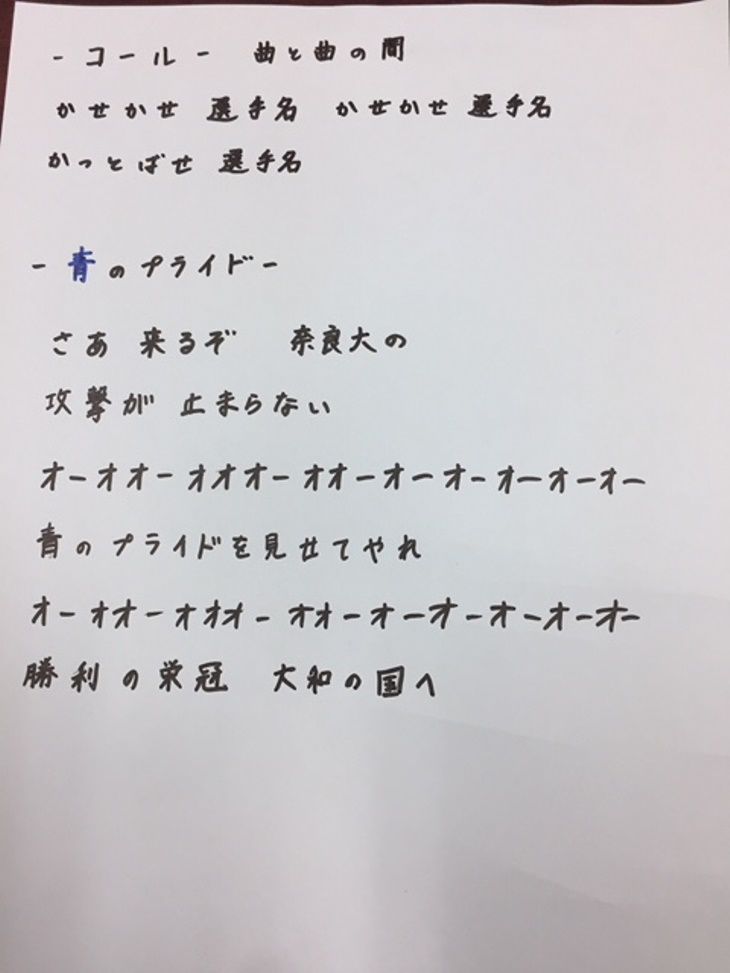 - コール -　曲と曲の間
かせかせ 選手名　かせかせ 選手名
かっとばせ 選手名
- 青のプライド -
さあ 来るぞ　奈良大の
攻撃が 止まらない
オーオオーオオオーオオーオーオーオーオーオー
青のプライドを見せてやれ
オーオオーオオオーオオーオーオーオーオーオー
勝利の栄冠　大和の国へ